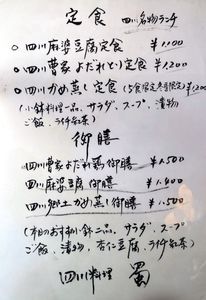 定食 四川名物ランチ
○ 四川麻婆豆腐定食 ¥1.100
○ 四川曹家よだれどり定食 ¥1.200
○ 四川かめ蒸し定食 (5食限定) ¥1.200
(小鉢料理一品、サラダ、スープ、漬物
ご飯、ライチ紅茶)
御膳
四川曹家よだれ鶏御膳 ¥1.500
四川麻婆豆腐御膳 ¥1.400
四川郷土かめ蒸し御膳 ¥1.500
(本日のおすすめ小鉢二品、サラダ、スープ
ご飯、漬物、杏仁豆腐、ライチ紅茶)
四川料理 蜀